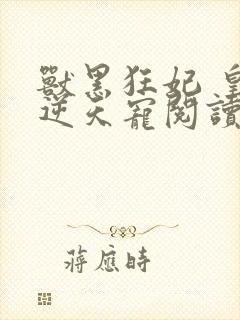 獸黑狂妃 皇
逆天寵閱讀
蔣應時